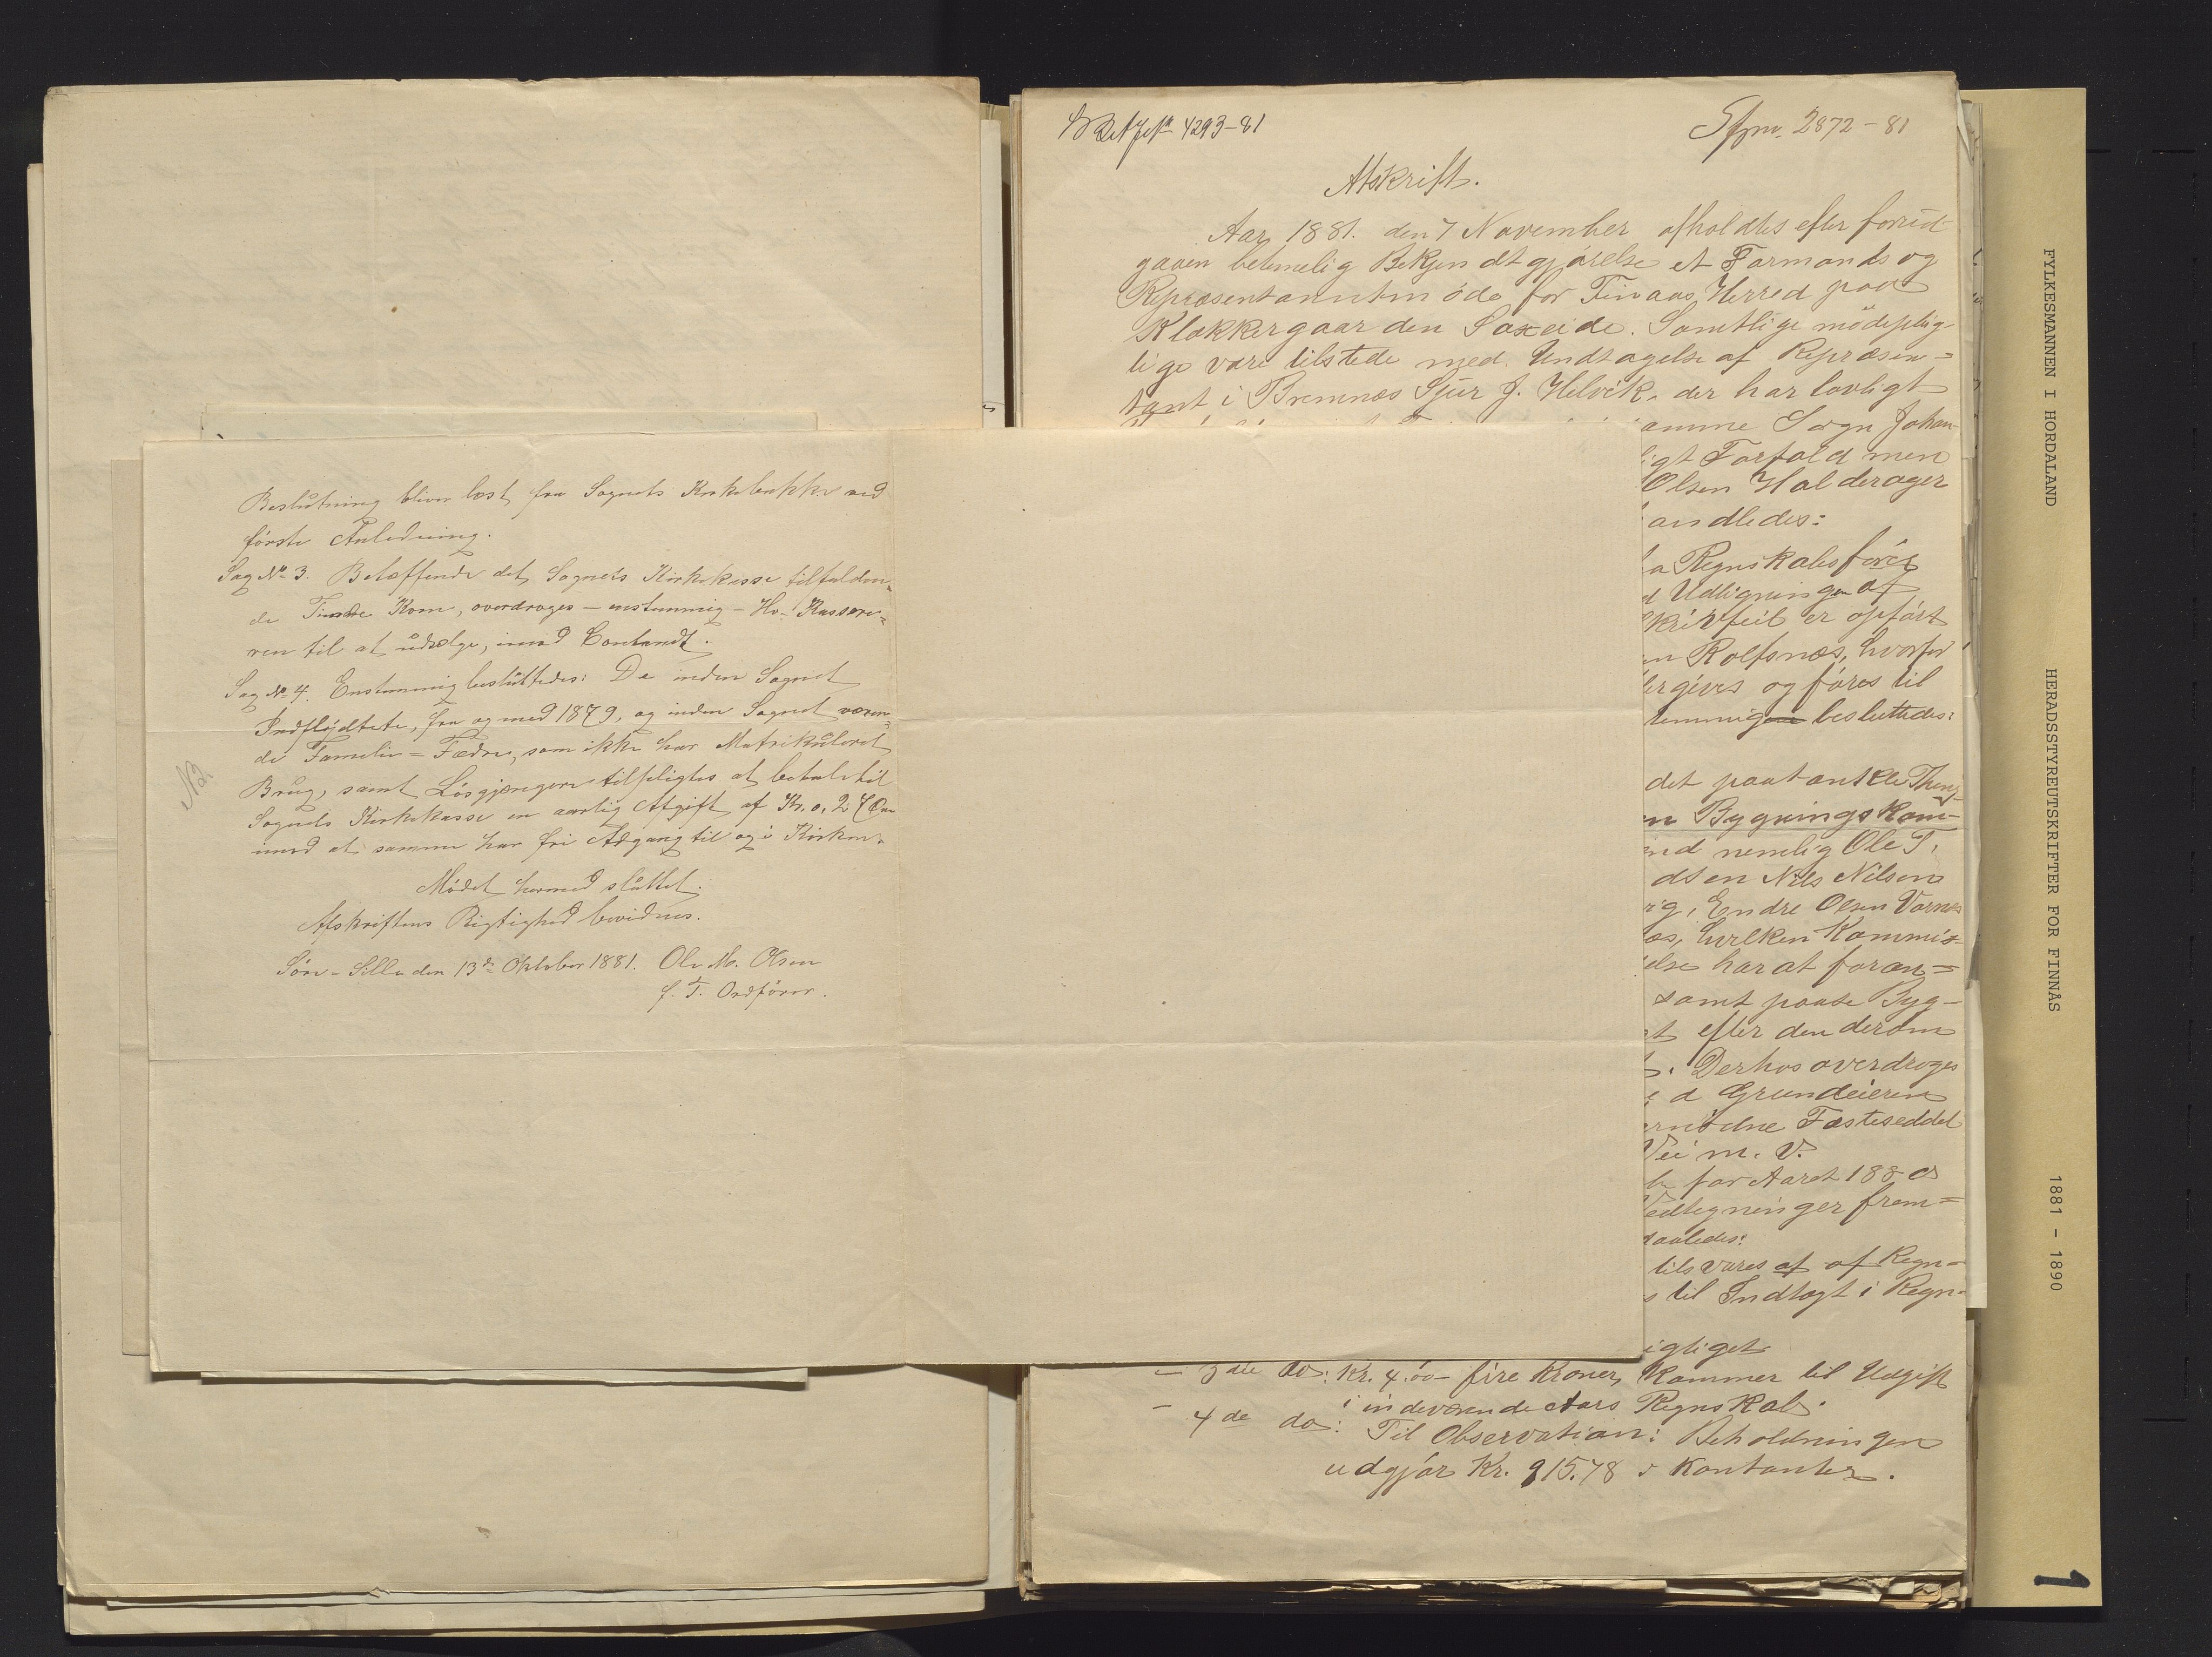 Beslutning bliver læst fra Sognets Kirkebakke ved
første Anledning.
Sag No 3. Betæffende det Sognets Kirkekasse tilfalden-
de Tiende Korn, overdroges – enstemmig – Hr. Kassere-
ren til at udsælge, imod Contandt.
Sag No 4. Enstemmig besluttedes: De inden Sognet
Indflydtete, fra og med 1879, og inden Sognet væren-
de Familie = Fædre, som ikke har Matrikuleret
Brug, samt Løsgjængere tilpligtes at betale til
Sognets Kirkekasse en aarlig Afgift af Kr. 0,27 Øre
imod at samme har fri Adgang til og i Kirken.
Mödet hermed sluttet.
Afskriftens Rigtighed bevidnes.
den 13de Oktober 1881. Ole M. Olsen
f. T. Ordförer.
4293-81
2872-81
Afskrift.
Aar 1881. den 7 November afholdtes efter forud
gaaen betimelig Bekjendtgjørelse et Formands og
Repræsentantmöde for Finaas Herred paa
Klokkergaarden Saxeide. Samtlige mödeplig-
lige vare tilstede med Undtagelse af Repræsen=
tant i Bremnæs Sjur J. Helvik, der har lovligt
amme Sogn Johan-
igt Forfald men
Olsen Halderager
andledes:
a Regnskabsförer
d Udligningen af
krivfeil er opført
en Rolfsnæs, hvorfor
ergives og føres til
temmigen besluttedes:
det paatænkte Thing-
en Bygningskom-
nd nemlig Ole T.
dsen Nils Nilsen
ig, Endre Olsen Vornæs
æs, hvilken Kommis-
else har at foran=
samt paase Byg-
et efter den derom
t. Derhos overdroges
e d Grundeieren
ernödne Fæsteseddel
Vei m. V.
b for Aaret 1880
edtegninger frem=
saaledes:
tilsvares af af Regn-
s til Indtægt i Regn-
igtiget
– 3die do: Kr. 4.00 – fire Kroner, Kommer til Udgift
i indeværende Aars Regnskab.
– 4de do: Til Observation: Beholdningen
udgjør Kr. 915.78 i Kontanter.
FYLKESMANNEN I HORDALAND
HERADSSTYREUTSKRIFTER FOR FINNÅS
1881 - 1890
1